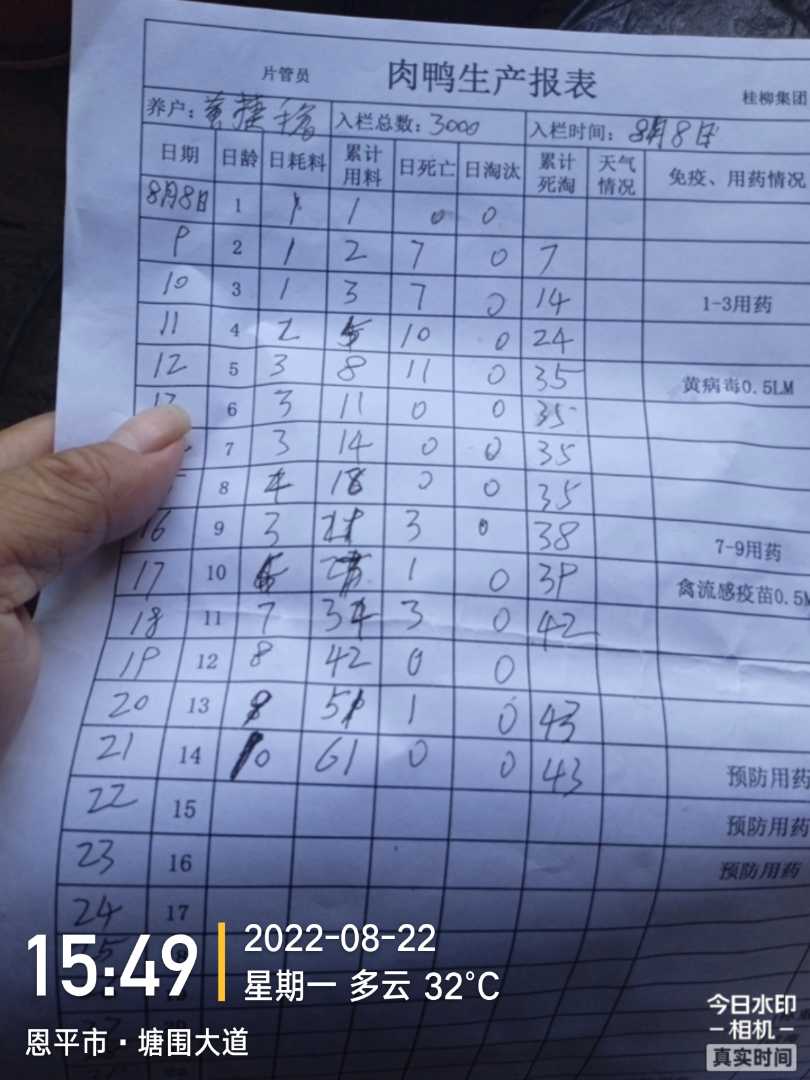 肉鸭生产报表
片管员 桂柳集团
养户: 入栏总数: 3000 入栏时间: 8月8日
日期 日龄 日耗料 累计用料 日死亡 日淘汰 累计死淘 天气情况 免疫、用药情况
8月8日 1 1 1 0 0
9 2 1 2 7 0 7
10 3 1 3 7 0 14 1-3用药
11 4 2 5 10 0 24
12 5 3 8 11 0 35 黄病毒0.5LM
6 3 11 0 0 35
7 3 14 0 0 35
8 4 18 0 0 35
16 9 3 21 3 0 38 7-9用药
17 10 1 0 39 禽流感疫苗0.5M
18 11 7 34 3 0 42
19 12 8 42 0 0
20 13 51 1 0 43
21 14 10 61 0 0 43 预防用药
22 15 预防用药
23 16 预防用药
24 17
15:49 2022-08-22
星期一 多云 32°C
恩平市·塘围大道
今日水印
-相机-
真实时间